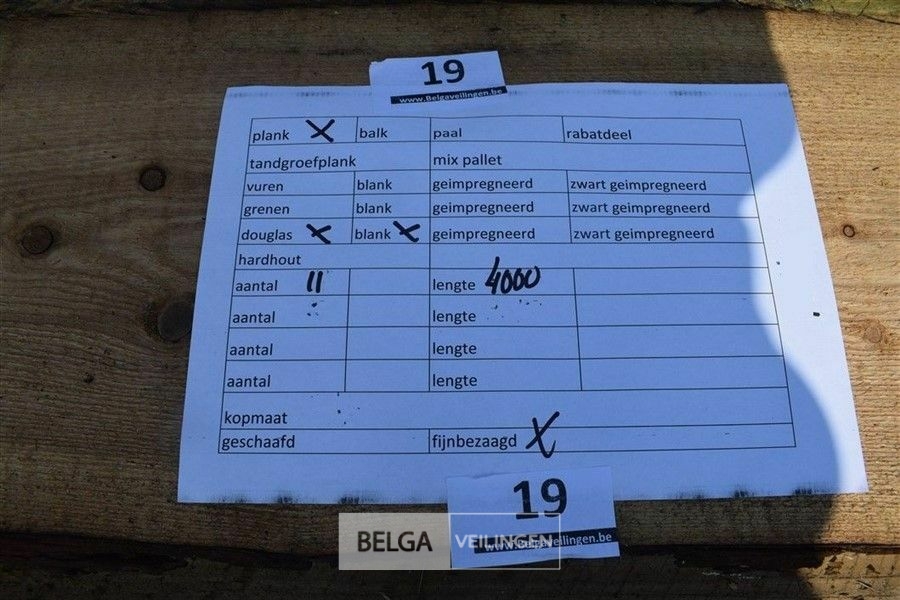 19
www.Belgaveilingen.be
plank X balk paal rabatdeel
tandgroefplank mix pallet
vuren blank geimpregneerd zwart geimpregneerd
grenen blank geimpregneerd zwart geimpregneerd
douglas X blank X geimpregneerd zwart geimpregneerd
hardhout
aantal 11 lengte 4000
aantal lengte
aantal lengte
aantal lengte
kopmaat
geschaafd fijnbezaagd X
19
www.Belgaveilingen.be
BELGA VEILINGEN